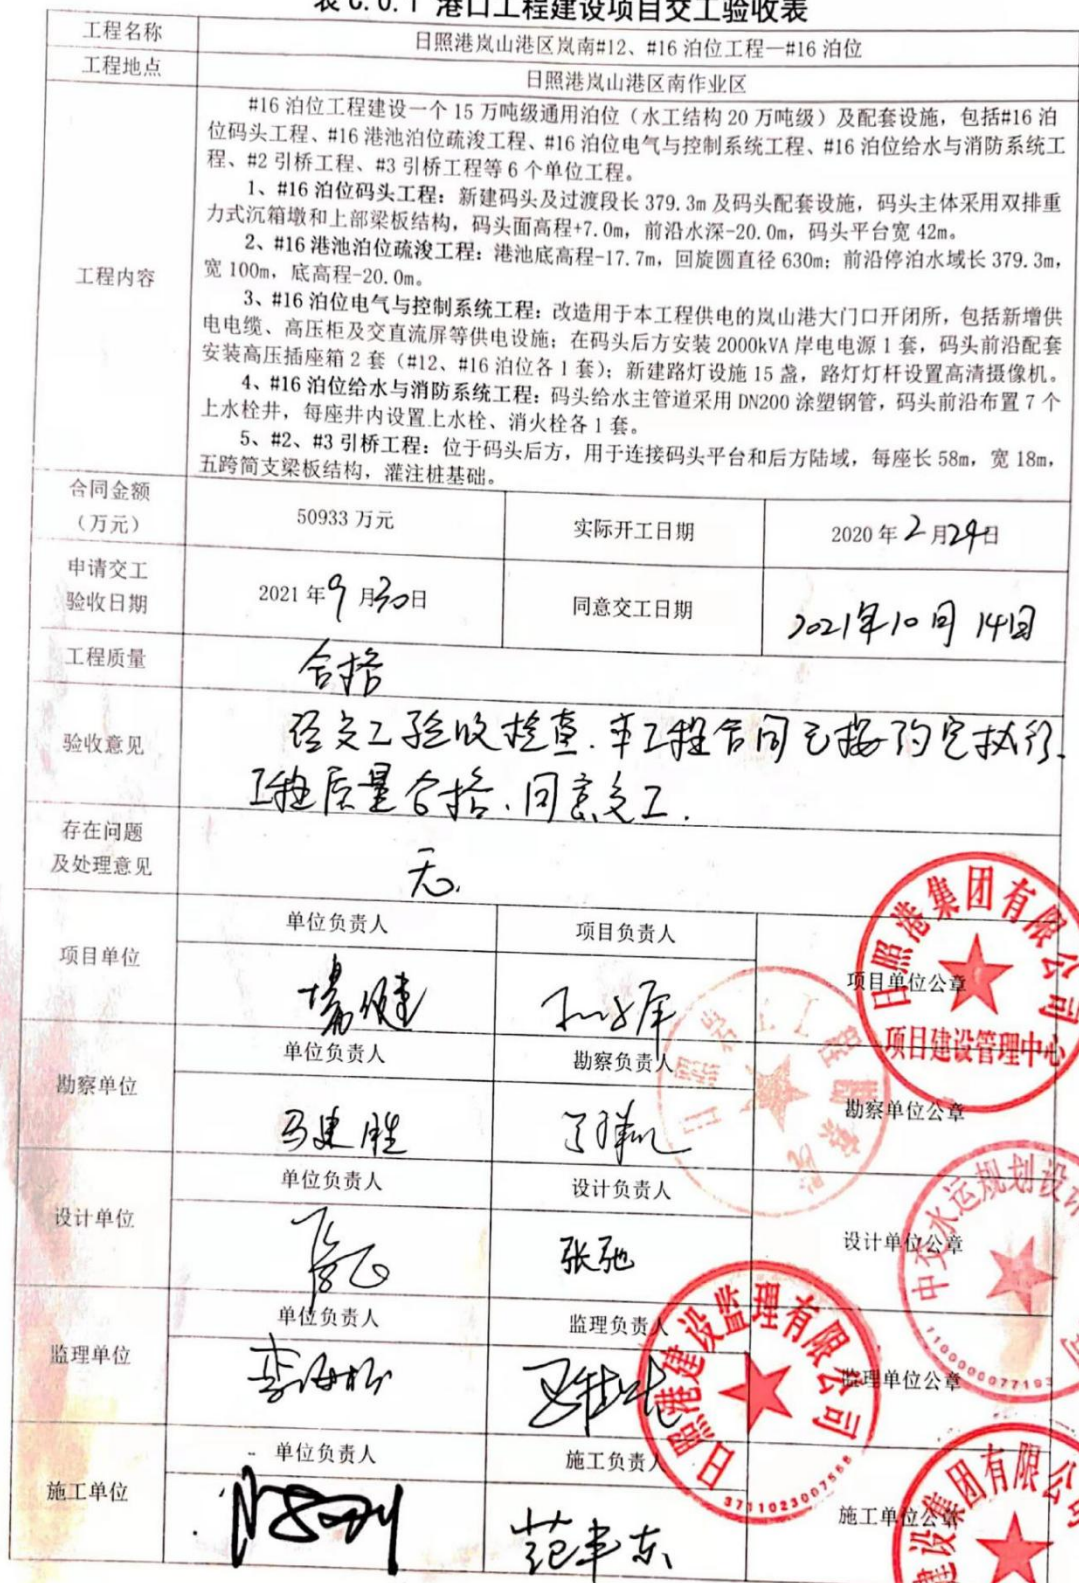 表 C.0.1 港口工程建设项目交工验收表
工程名称
日照港岚山港区岚南#12、#16 泊位工程—#16 泊位
工程地点
日照港岚山港区南作业区
工程内容
#16 泊位工程建设一个 15 万吨级通用泊位（水工结构 20 万吨级）及配套设施，包括#16 泊
位码头工程、#16 港池泊位疏浚工程、#16 泊位电气与控制系统工程、#16 泊位给水与消防系统工
程、#2 引桥工程、#3 引桥工程等 6 个单位工程。
1、#16 泊位码头工程：新建码头及过渡段长 379.3m 及码头配套设施，码头主体采用双排重
力式沉箱墩和上部梁板结构，码头面高程+7.0m，前沿水深-20.0m，码头平台宽 42m。
2、#16 港池泊位疏浚工程：港池底高程-17.7m，回旋圆直径 630m；前沿停泊水域长 379.3m，
宽 100m，底高程-20.0m。
3、#16 泊位电气与控制系统工程：改造用于本工程供电的岚山港大门口开闭所，包括新增供
电电缆、高压柜及交直流屏等供电设施；在码头后方安装 2000kVA 岸电电源 1 套，码头前沿配套
安装高压插座箱 2 套（#12、#16 泊位各 1 套）；新建路灯设施 15 盏，路灯灯杆设置高清摄像机。
4、#16 泊位给水与消防系统工程：码头给水主管道采用 DN200 涂塑钢管，码头前沿布置 7 个
上水栓井，每座井内设置上水栓、消火栓各 1 套。
5、#2、#3 引桥工程：位于码头后方，用于连接码头平台和后方陆域，每座长 58m，宽 18m，
五跨简支梁板结构，灌注桩基础。
合同金额
（万元）
50933 万元
实际开工日期
2020 年 2 月 24 日
申请交工
验收日期
2021 年 9 月 30 日
同意交工日期
2021年10月14日
工程质量
合格
验收意见
经交工验收检查，本工程合同已按约定执行，
工程质量合格，同意交工．
存在问题
及处理意见
无．
项目单位
单位负责人
项目负责人
项目单位公章
日照港集团有限公司
项目建设管理中心
勘察单位
单位负责人
勘察负责人
勘察单位公章
马建胜
设计单位
单位负责人
设计负责人
设计单位公章
张弛
中交水运规划设计
1100000077193
监理单位
单位负责人
监理负责人
监理单位公章
李海松
日照港建设监理有限公司
3711023007568
施工单位
单位负责人
施工负责人
施工单位公章
范丰东
建设集团有限公